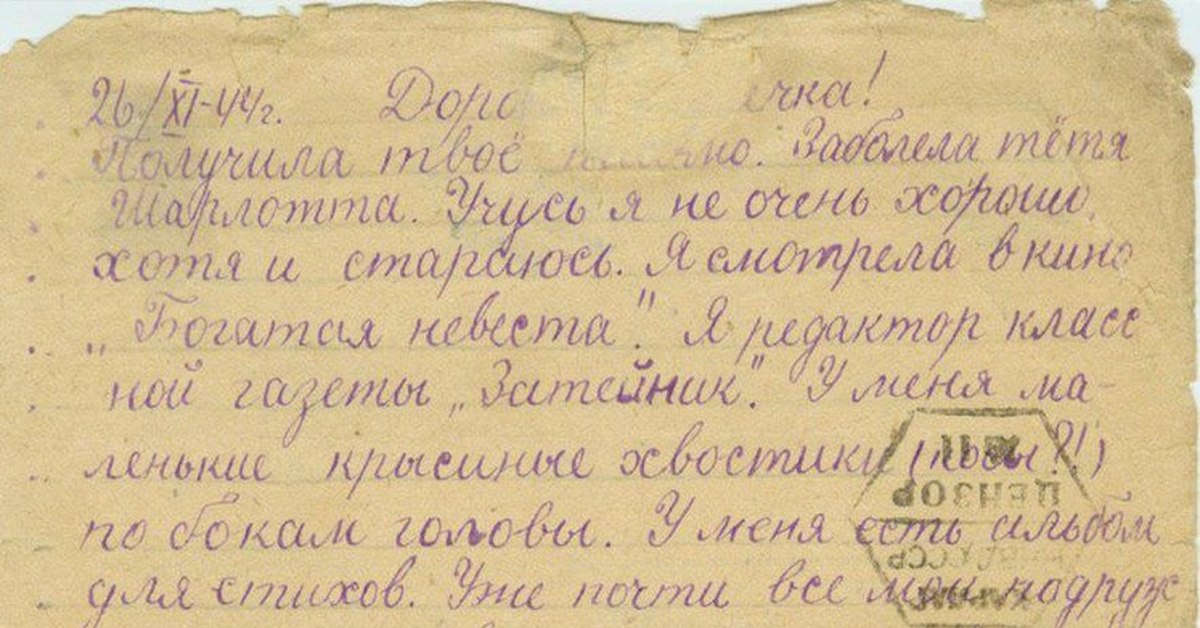 26/XI-44г. Доро ечка!
Получила твоё письмо. Заболела тётя
Шарлотта. Учусь я не очень хорошо,
хотя и стараюсь. Я смотрела в кино
„Богатая невеста". Я редактор класс
ной газеты „Затейник". У меня ма-
ленькие крысиные хвостики (косы?!)
по бокам головы. У меня есть альбом
для стихов. Уже почти все мои подруж
ЦЕНЗОР